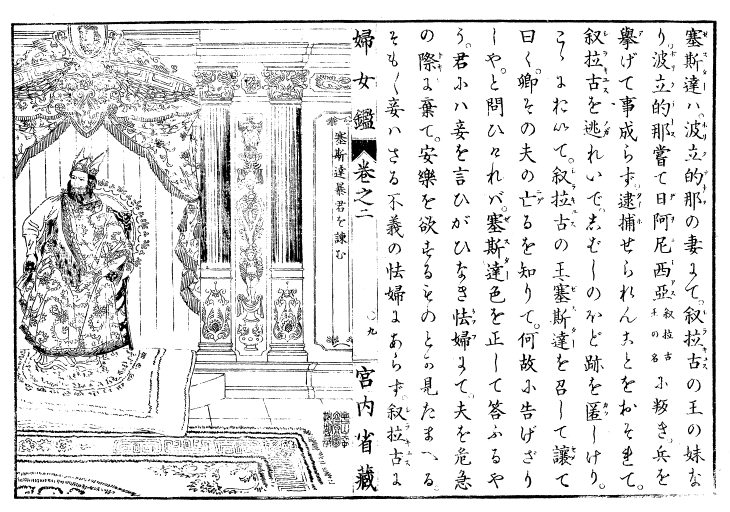 塞斯達ハ波立的那の妻にて。叙拉古の王の妹な
り。波立的那嘗て日阿尼西亞叙拉古王の名に叛き。兵を
擧げて事成らず。逮捕せられんことをおそれて。
叙拉古を逃れいで。志ばしのほど跡を匿しけり。
こゝにおいて。叙拉古の王。塞斯達を召して讓て
曰く。卿その夫の亡るを知りて。何故に告げざり
しや。と問ひけれバ。塞斯達色を正して答ふるや
う。君にハ妾を言ひがひなき怯婦にて。夫を危急
の際に棄て。安樂を欲するものとか見たまへる。
そも〱妾ハさる不義の怯婦にあらず。叙拉古に
婦女鑑 卷之二 九 宮内省藏
塞斯達暴君を諌む